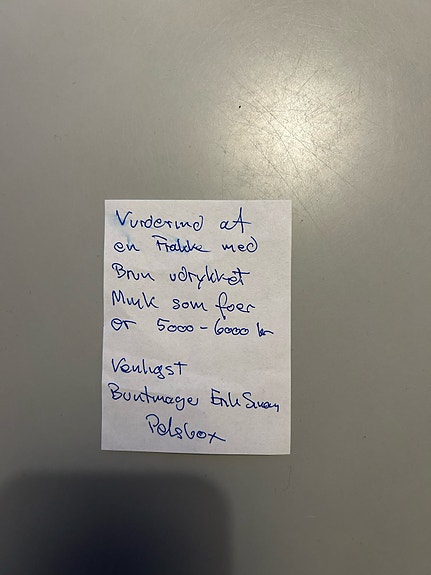 Vurderind af
en Frakke med
Brun udrykket
Mink som foer
er 5000 - 6000 kr
Venligst
Buntmager Erik
Pelsbox